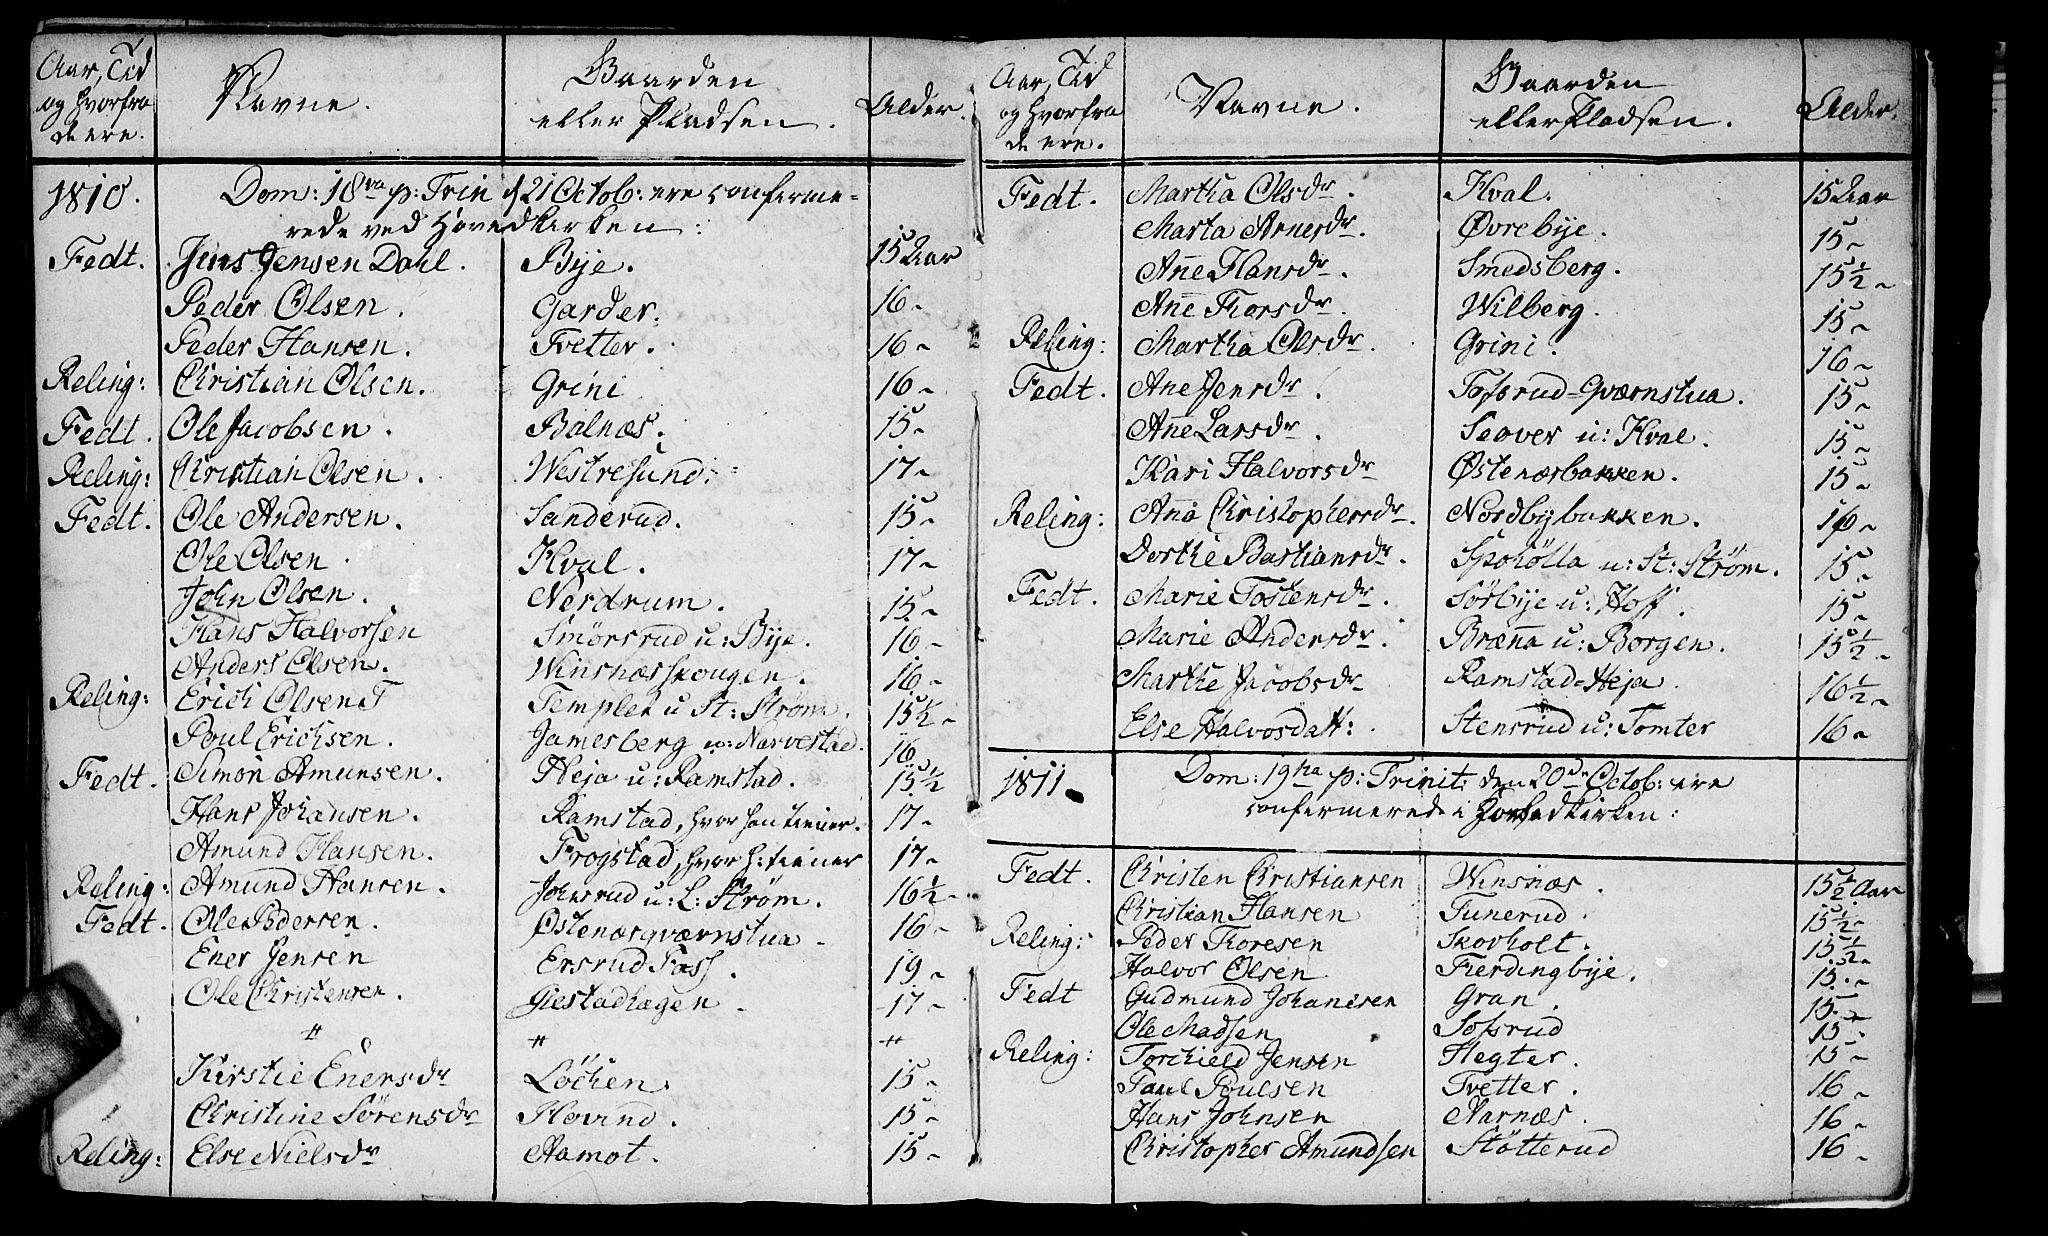 Aar, Tid og hvorfra de ere. Navne. Gaarden eller Pladsen. Alder.
1810. Dom: 18va p: Trin d 21 Octob: ere confirme=
rede ved Hovedkirken:
Fedt. Jens Jensen Dahl. Bye. 15 Aar
Peder Olsen. Garder. 16 -
Peder Hansen. Tvetter. 16 -
Reling: Christian Olsen. Grini 16 -
Fedt. Ole Jacobsen. Balnæs. 15 -
Reling: Christian Olsen. Westresund: 17 -
Fedt. Ole Andersen. Sanderud. 15 -
Ole Olsen. Hval. 17 -
John Olsen. Nerdrum. 15 -
Hans Halvorsen Smørsrud u: Bye. 16 -
Anders Olsen. Winsnæsskougen. 16 -
Reling: Erich Olsen Templen u St: Strøm. 15½ -
Poul Erichsen. Jamesberg u: Nærvestad. 16
Fedt. Simon Amunsen. Heja u: Ramstad. 15½
Hans Johansen. Ramstad, hvor han tiener. 17 -
Amund Hansen. Frogstad, hvor h: tiener 17 -
Reling: Amund Hansen. Johnsrud u: L: Strøm. 16½ -
Fedt. Ole Pedersen. Østenæsqværnstua - 16 -
Ener Jensen Ersrud Foss. 19 -
Ole Christensen. Giestadhagen - 17 -
# # #
Kirstie Enersdr Løchen. 15 -
Christine Sørensdr Hovind. 15 -
Reling: Else Nielsdr Aamot. 15 -
Aar, Tid og hvorfra de ere. Navne. Gaarden eller Pladsen. Alder.
Fedt. Martha Olsdr. Hval. 15 Aar
Marta Arnesdr. Øvrebye. 15 -
Añe Hansdr. Smedsberg. 15½ -
Añe Thorsdr. Wilberg. 15 -
Reling: Martha Olsdr. Grini. 16 -
Fedt. Ane Jensdr. Tofsrud-Qværnstua. 15 -
Añe Larsdr. Skover u: Hval. 15 -
Kari Halvorsdr Østenæsbakken. 15 -
Reling: Aña Christophersdr. Nordbybakken. 16 -
Dorthe Bastiansdr. Spohölla u: St: Strøm. 15 -
Fedt. Marie Tostensdr. Sørbye u: Hoff. 15 -
Marie Andersdr. Bræña u: Borgen. 15½ -
Marthe Jacobsdr Ramstad-Heja. 16½ -
Else Halvorsdatt: Stensrud u: Tomter 16 -
1811. Dom: 19ha p: Trinit: den 20de Octob: ere
confirmerede i Hovedkirken:
Fedt. Christen Christiansen Winsnæs. 15½ Aar
Christian Hansen Tunerud. 15½ -
Reling: Peder Thoresen Skovholt. 15½ -
Halvor Olsen Fierdingbye. 15 -
Fedt Gudmund Johannesen Gran. 15 -
Ole Madsen Sofsrud 15 -
Reling: Torchield Jensen Hegter. 15 -
Paul Poulsen Tvetter. 16 -
Hans Johnsen Narnæs. 16 -
Christopher Amundsen Støtterud 16 -